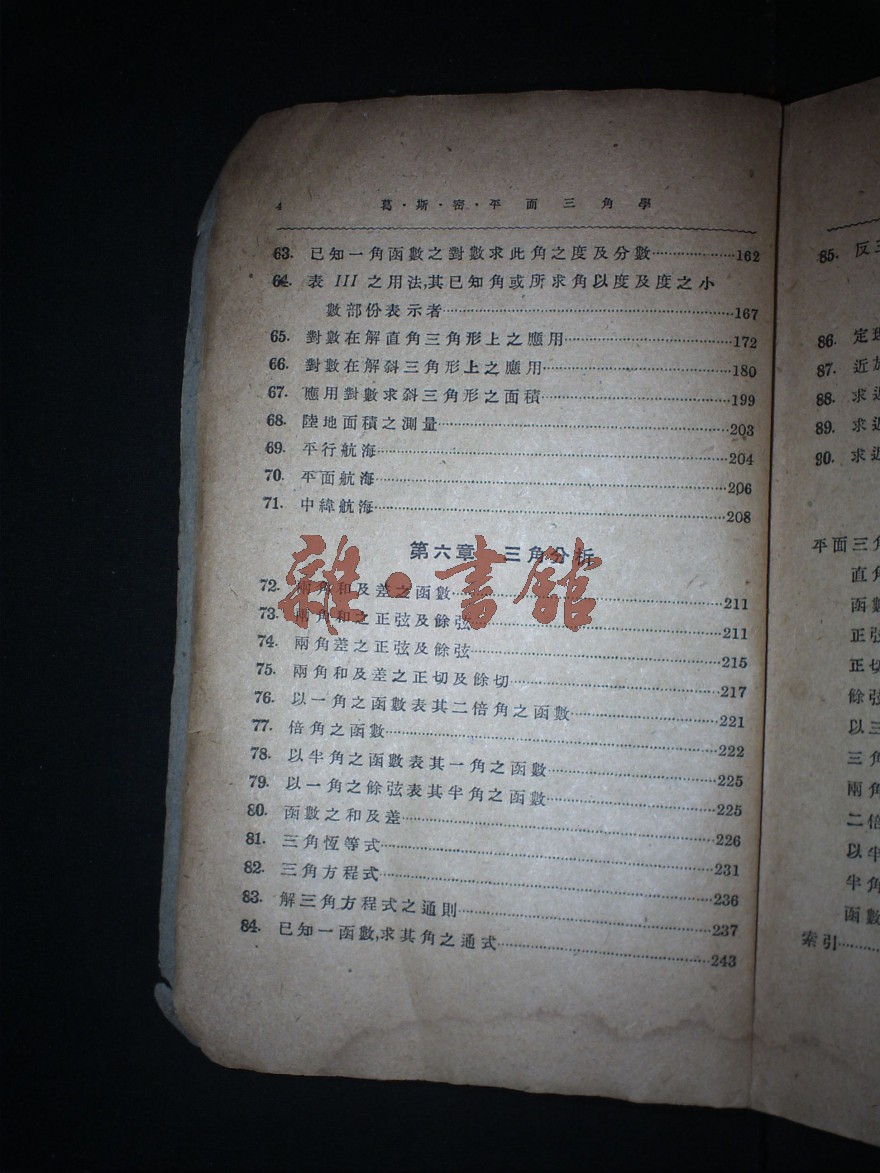 4 葛·斯·密·平面三角學
63. 已知一角函數之對數求此角之度及分數 162
64. 表 III 之用法,其已知角或所求角以度及度之小
數部份表示者 167
65. 對數在解直角三角形上之應用 172
66. 對數在解斜三角形上之應用 180
67. 應用對數求斜三角形之面積 199
68. 陸地面積之測量 203
69. 平行航海 204
70. 平面航海 206
71. 中緯航海 208
第六章 三角分析
72. 兩角和及差之函數 211
73. 兩角和之正弦及餘弦 211
74. 兩角差之正弦及餘弦 215
75. 兩角和及差之正切及餘切 217
76. 以一角之函數表其二倍角之函數 221
77. 倍角之函數 222
78. 以半角之函數表其一角之函數 225
79. 以一角之餘弦表其半角之函數 225
80. 函數之和及差 226
81. 三角恆等式 231
82. 三角方程式 236
83. 解三角方程式之通則 237
84. 已知一函數,求其角之通式 243
雜·書館
85. 反三
86. 定理
87. 近
88. 求近
89. 求近
90. 求近
平面三角
直角
函數
正弦
正切
餘弦
以三
三角
兩角
二倍
以半
半角
函數
索引